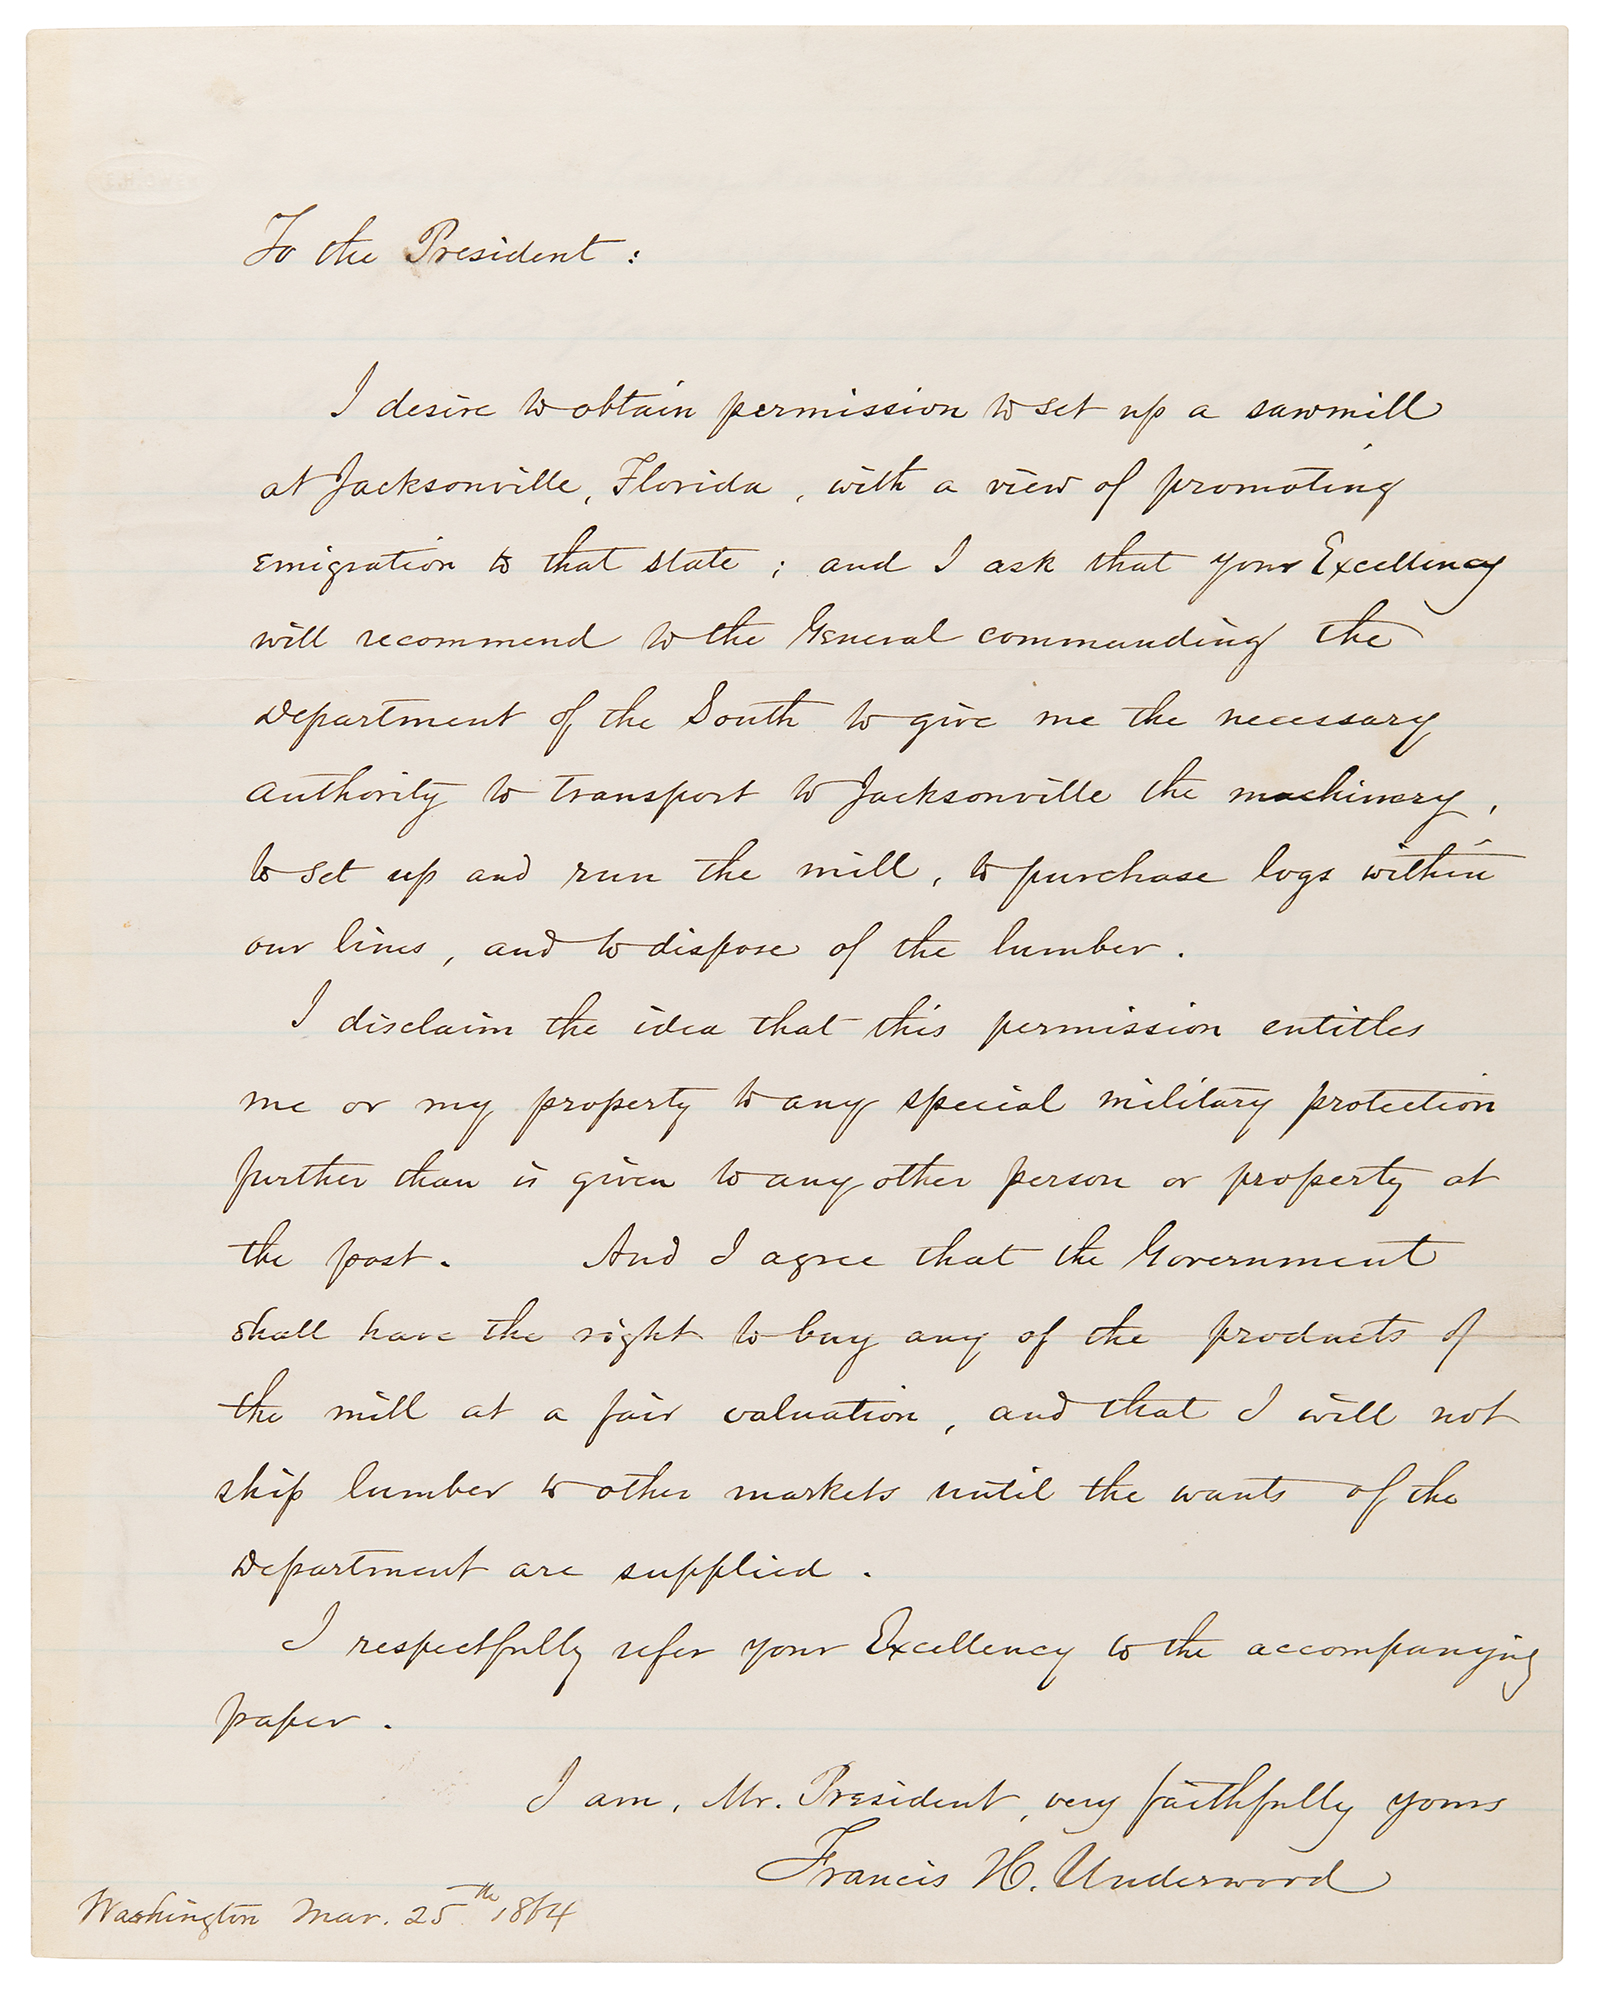 To the President :
I desire to obtain permission to set up a sawmill
at Jacksonville, Florida, with a view of promoting
emigration to that state ; and I ask that your Excellency
will recommend to the General commanding the
Department of the South to give me the necessary
authority to transport to Jacksonville the machinery,
to set up and run the mill, to purchase logs within
our lines, and to dispose of the lumber.
I disclaim the idea that this permission entitles
me or my property to any special military protection
further than is given to any other person or property at
the post. And I agree that the Government
shall have the right to buy any of the products of
the mill at a fair valuation, and that I will not
ship lumber to other markets until the wants of the
Department are supplied.
I respectfully refer your Excellency to the accompanying
paper.
I am, Mr. President, very faithfully yours
Francis H. Underwood
Washington Mar. 25th, 1864